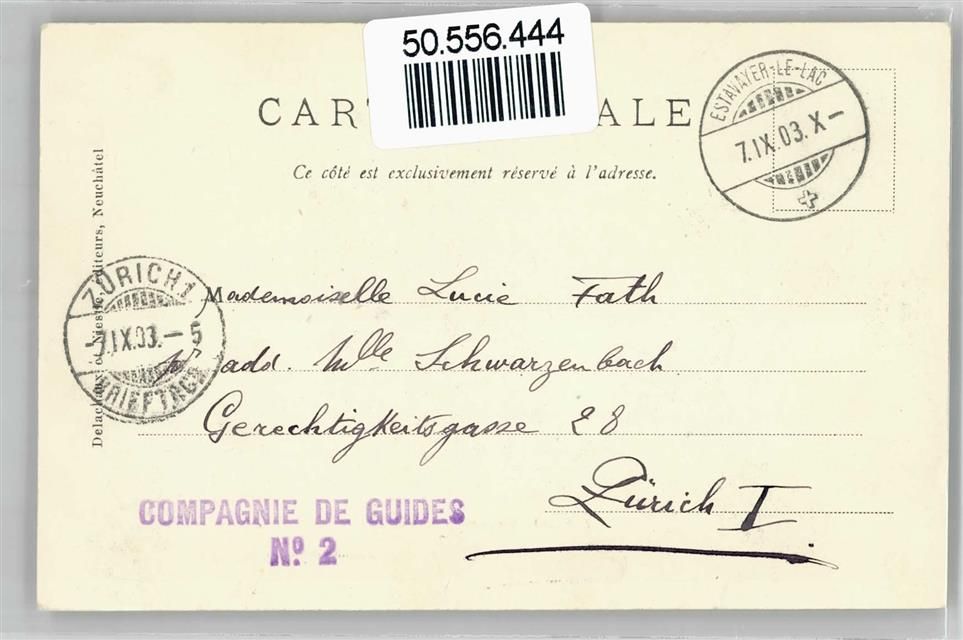 50.556.444
CART ALE
Ce côté est exclusivement réservé à l'adresse.
ESTAVAYER-LE-LAC
7.IX.03.X-
Delachaux et Niestlé, Éditeurs, Neuchâtel
ZÜRICH 1
-7.IX.03.-5
BRIEFTRÄG
Mademoiselle Lucie Fath
add. Mlle Schwarzenbach
Gerechtigkeitsgasse 28
Zürich I
COMPAGNIE DE GUIDES
Nº 2